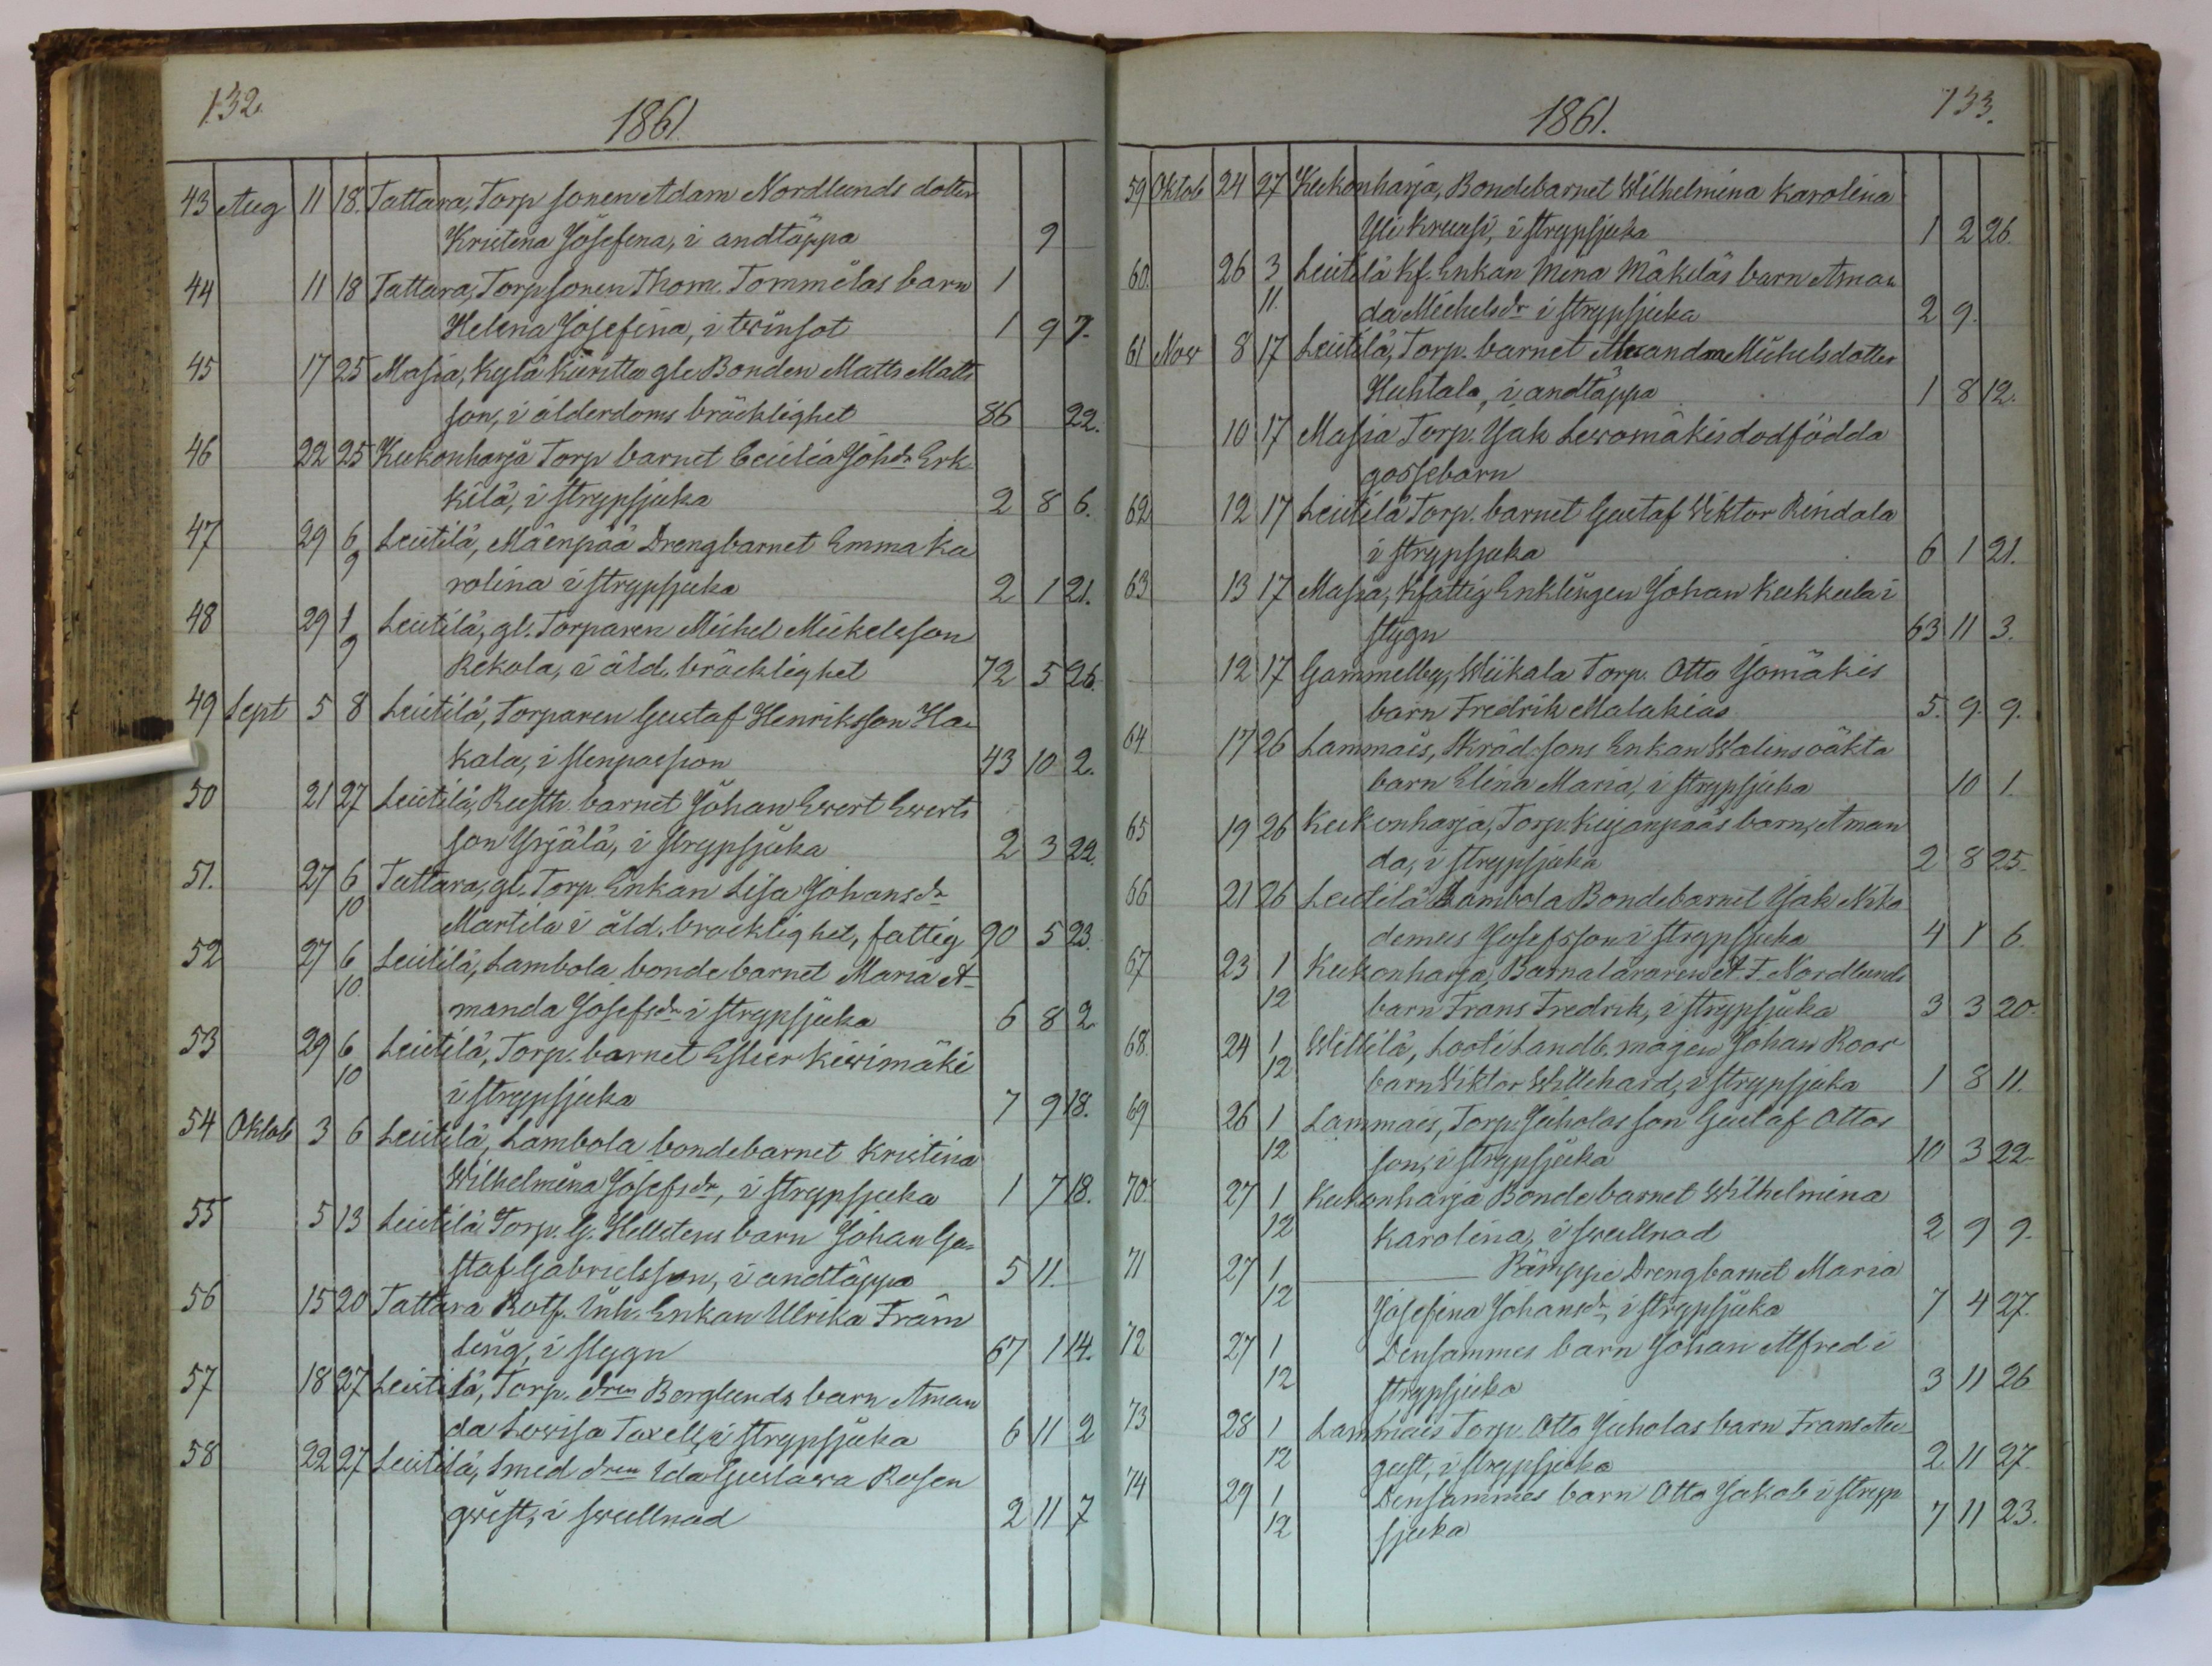 132.
1861.
43 Aug 11 18. Tattara, Torp sonen Adam Nordlunds dotter
Kristina Josefina, i andtäppa 9
44 11 18 Tattara, Torpsonen Thom. Tommilas barn 1
Helena Josefina, i twinsot 1 9 7.
45 17 25 Masia, Kylä Kiintta gle Bonden Matts Matts
son, i ålderdoms bräcklighet 86 22.
46 22 25 Kukonharja Torp barnet Cecilia Johdr Erk
kilä, i strypsjuka 2 8 6.
47 29 6 Leistilä, Mäenpää Drengbarnet Emma Ka
9 rolina i strypsjuka 2 1 21.
48 29 1 Leistilä, gl. Torparen Michel Mickelsson
9 Rekola, i åld. bräcklighet 72 5 26.
49 Sept 5 8 Leistilä, Torparen Gustaf Henriksson Ha
kala, i stenpassion 43 10 2.
50 21 27 Leistilä, Rusth. barnet Johan Evert Everts
son Yrjälä, i strypsjuka 2 3 22.
51. 27 6 Tattara, gl. Torp. Enkan Lisa Johansdr
10 Martila i åld. bräcklighet, fattig 90 5 23.
52 27 6 Leistilä, Lambola bonde barnet Maria A-
10. manda Josefsdr i strypsjuka 6 8 2
53 29 6 Leistilä, Torp. barnet Ester Kiwimäki
10 i strypsjuka 7 9 18.
54 Oktob 3 6 Leistilä, Lambola bondebarnet Kristina
Wilhelmina Josefsdr, i strypsjuka 1 7 18.
55 5 13 Leistilä Torp. G. Hellstens barn Johan Gu-
staf Gabrielsson, i andtäppa 5 11.
56 15 20 Tattara Rotf. Inh. Enkan Ulrika Främ
ling, i stygn 67 1 14.
57 18 27 Leistilä, Torp. dren Berglunds barn Aman
da Lovisa Taxell, i strypsjuka 6 11 2
58 22 27 Leistilä, Smed dren Ida Gustava Rosen
qwist, i swullnad 2 11 7
1861.
133.
59 Oktob 24 27 Kukonharja, Bondebarnet Wilhelmina Karolina
Yli Kruusi, i strypsjuka 1 2 26.
60. 26 3 Leistilä Kf. Enkan Mina Mäkeläs barn Aman
11. da Michelsdr i strypsjuka 2 9.
61 Nov 8 17 Leistilä, Torp. barnet Alexandra Michelsdotter
Huhtala, i andtäppa 1 8 12.
10 17 Masia Torp. Jak Lewomäkis dodfödda
gossebarn
62 12 17 Leistilä Torp. barnet Gustaf Wiktor Rindala
i strypsjuka 6 1 21.
63 13 17 Masia, Kfattig Enklingen Johan Kukkula i
stygn 63 11 3.
12 17 Gammelby, Wiikala Torp. Otto Jomäkis
barn Fredrik Malakias 5. 9. 9.
64 17 26 Lammais, Skräd. sons Enkan Walins oäkta
barn Elina Maria, i strypsjuka 10 1.
65 19 26 Kukonharja, Torp. Kujanpääs barn, Aman
da, i strypsjuka 2 8 25.
66 21 26 Leistilä Lambola Bondebarnet Jak Niko
demus Josefsson i strypsjuka 4 1 6.
67 23 1 Kukonharja, Barnaläraren A. F. Nordlunds
12 barn Frans Fredrik, i strypsjuka 3 3 20.
68. 24 1 Willilä, Looti Landb. mågen Johan Roos
12 barn Wiktor Willehard, i strypsjuka 1 8 11.
69 26 1 Lammais, Torp. Juholas son Gustaf Ottos
12 son, i strypsjuka 10 3 22.
70. 27 1 Kukonharja Bondebarnet Wilhelmina
12 Karolina, i swullnad 2 9 9.
71 27 1 ——— Rämppe Drengbarnet Maria
12 Josefina Johansdr, i strypsjuka 7 4 27.
72 27 1 Densammes barn Johan Alfred i
12 strypsjuka 3 11 26
73 28 1 Lammais Torp. Otto Juholas barn Frans Au
12 gust, i strypsjuka 2 11 27.
74 29 1 Densammes barn Otto Jakob i stryp
12 sjuka 7 11 23.